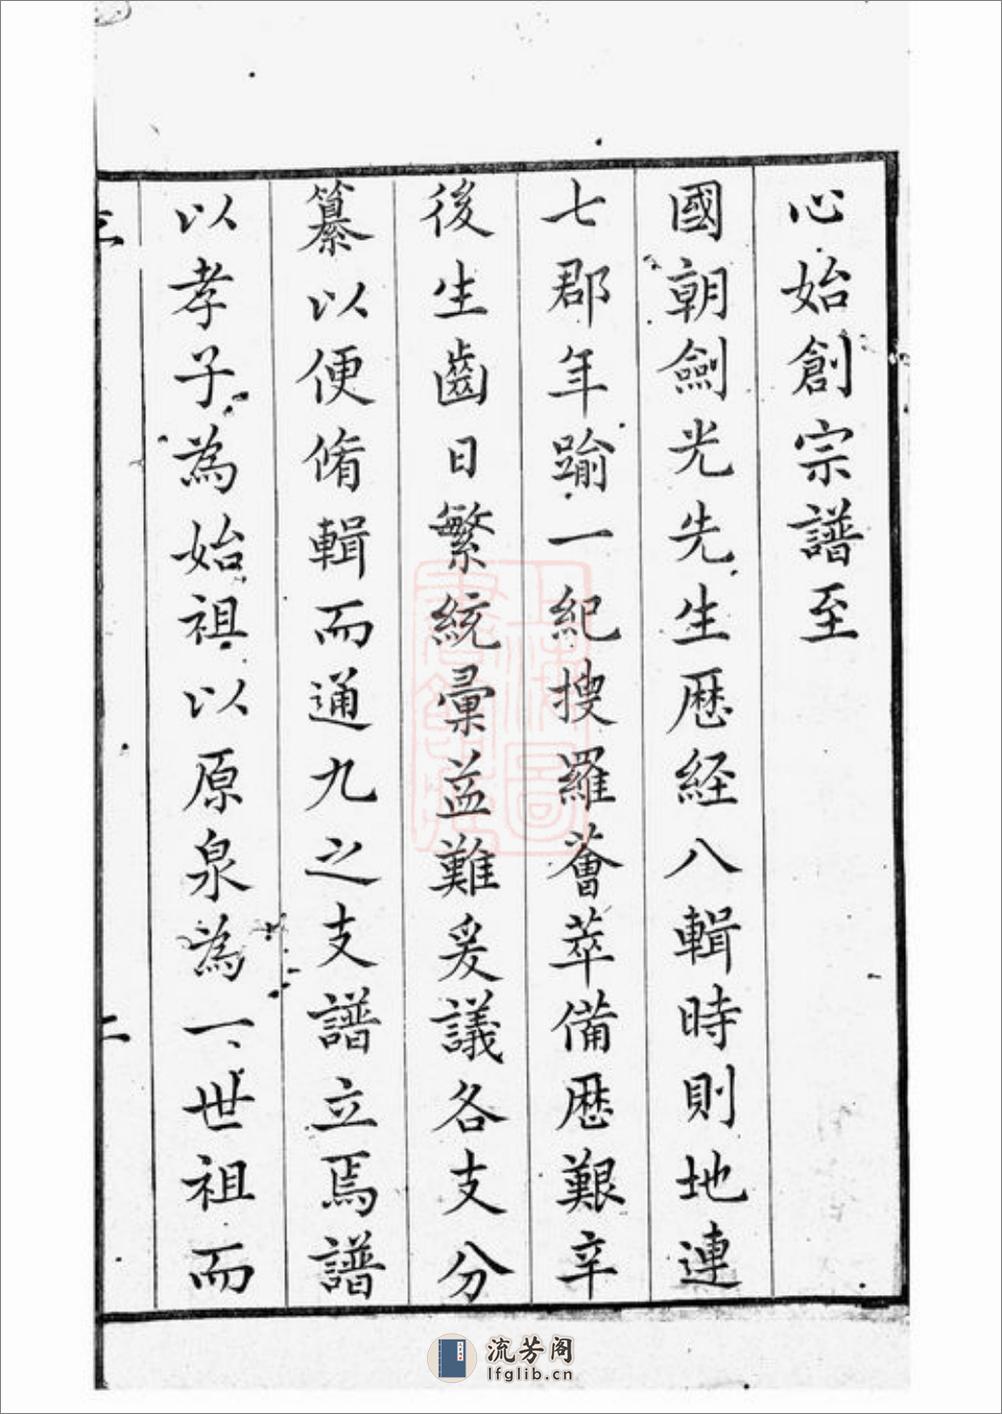 心始創宗譜至
國朝劍光先生歷経八輯時則地連
七郡年踰一紀搜羅薈萃備歷艱辛
後生齒日繁統彙益難爰議各支分
纂以便脩輯而通九之支譜立焉譜
以孝子為始祖以原泉為一世祖而
二
上海圖
書館藏
流芳阁
lfglib.cn